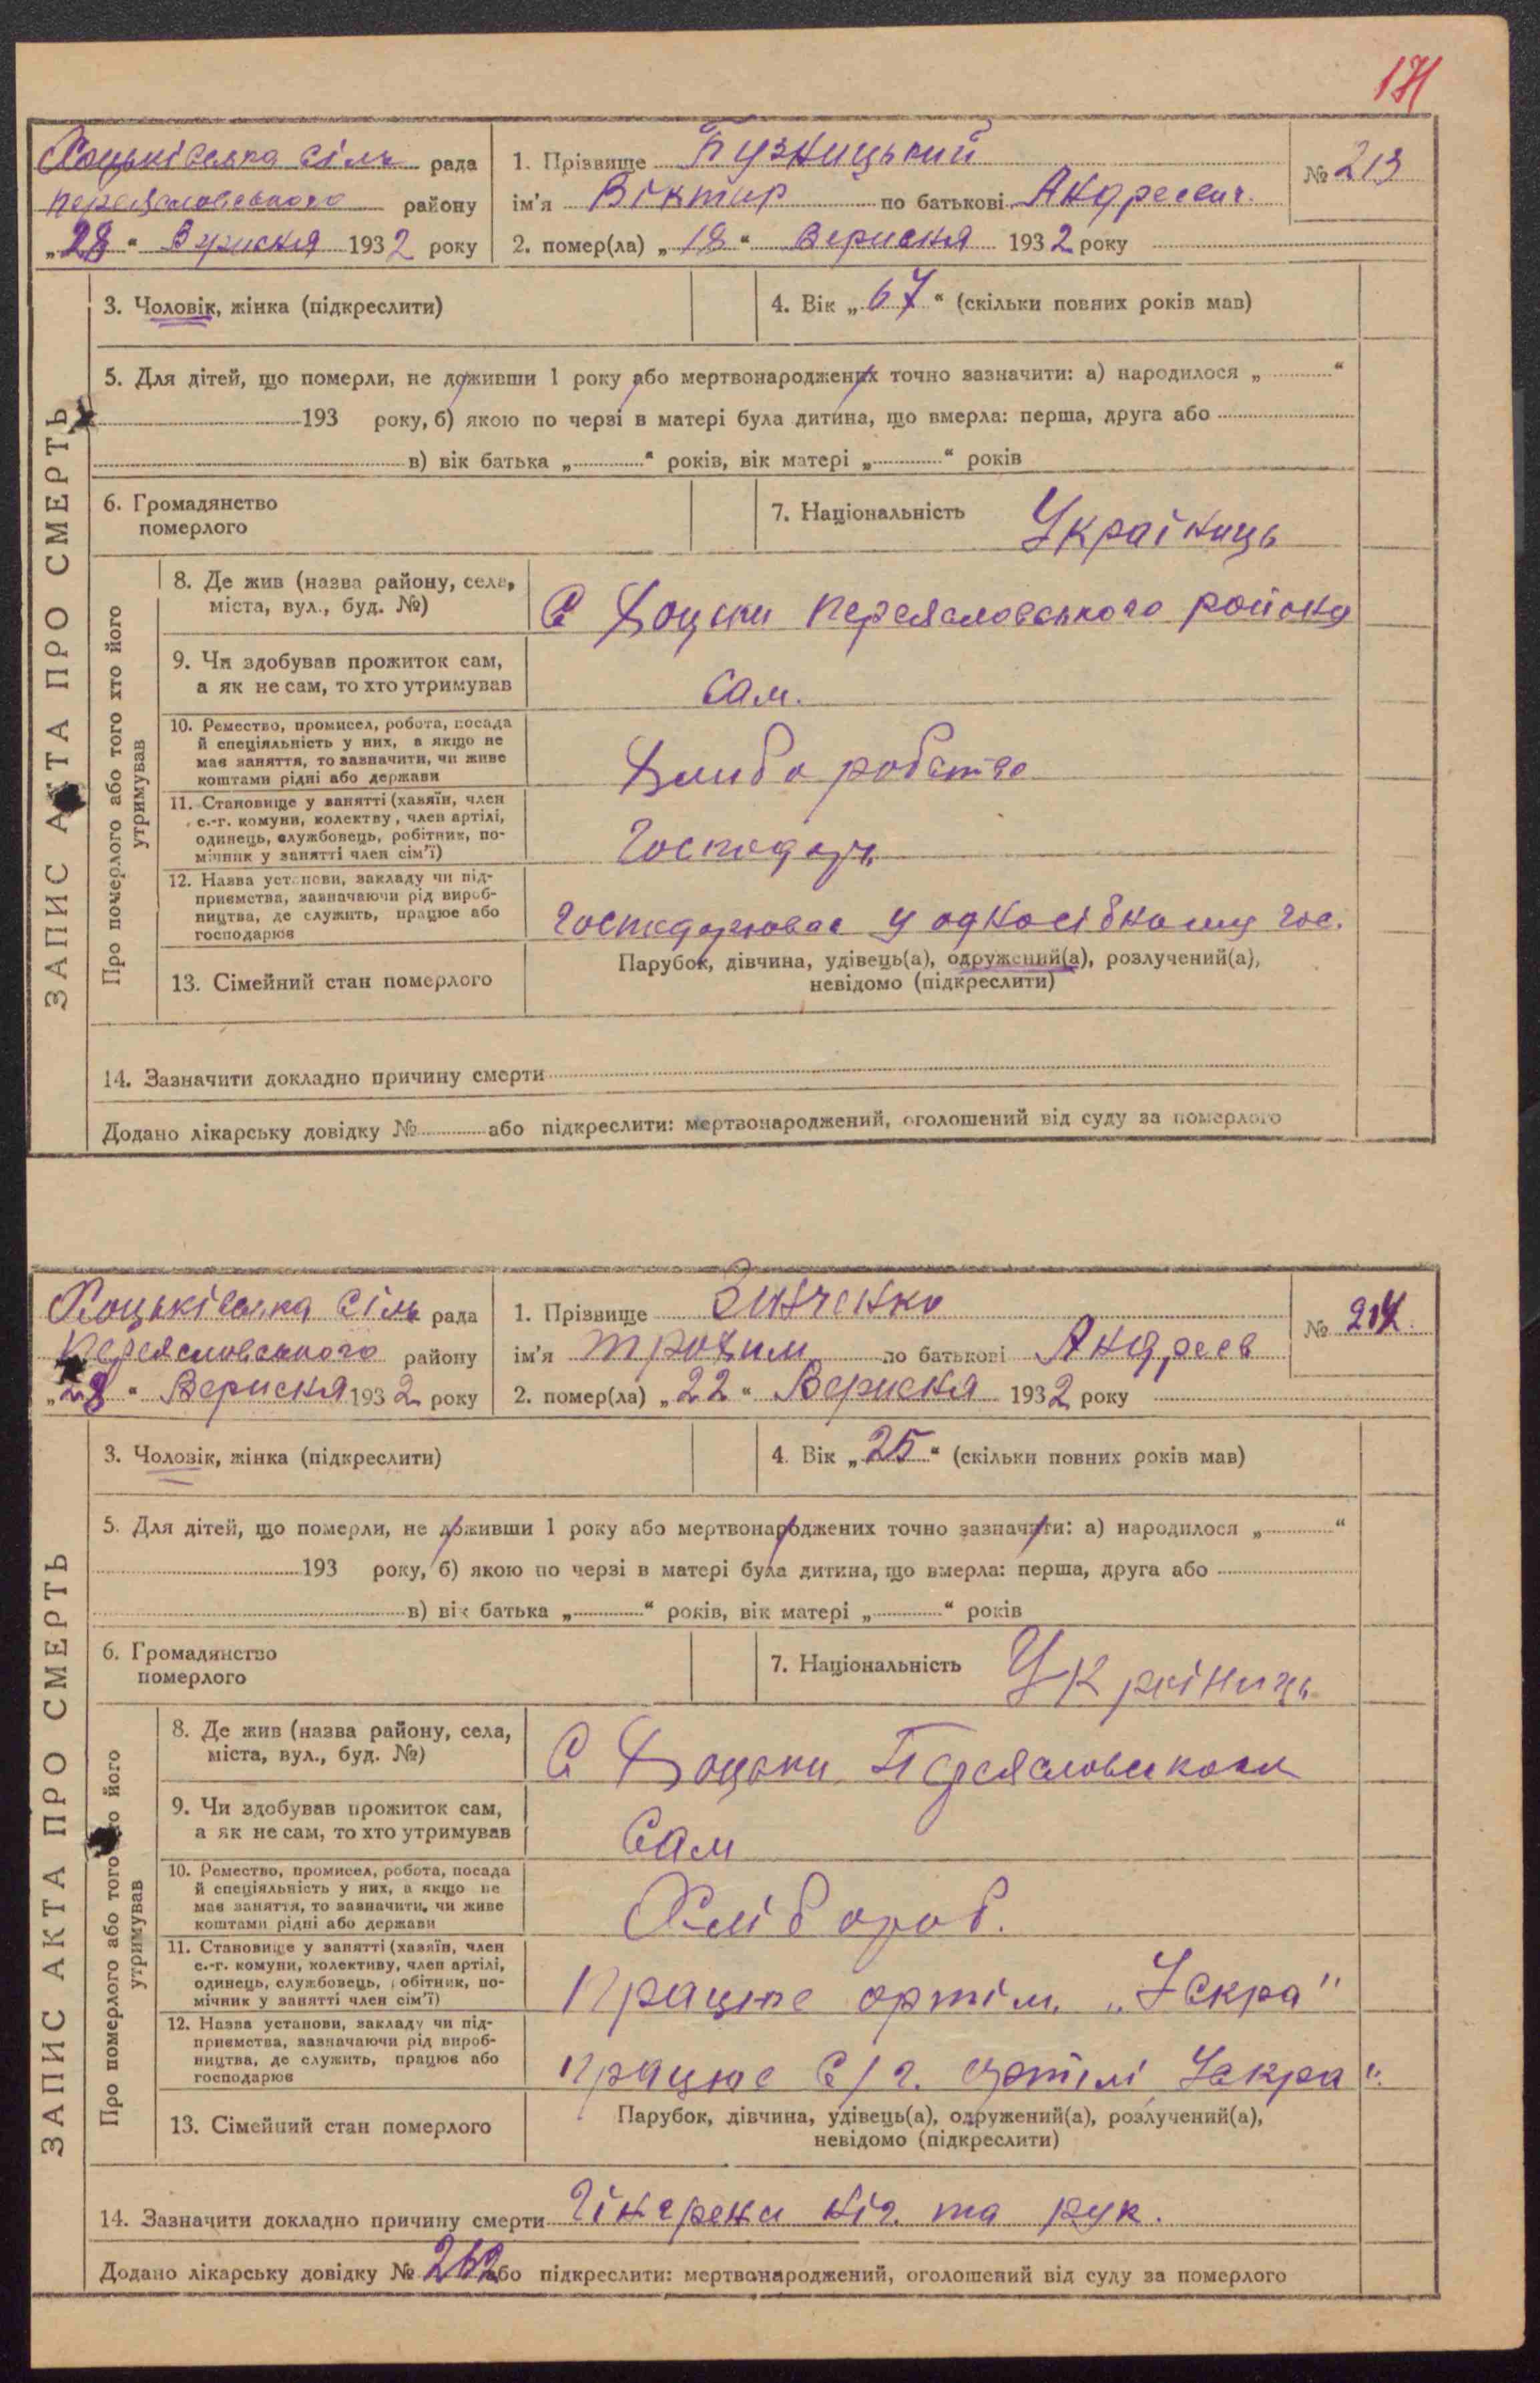 171
Хоцьківська сіль рада
Переяславського району
„28“ Вериспя 1932 року
1. Прізвище Пузницький
ім'я Віктир по батькові Андреевич.
2. помер(ла) „18“ Вериспя 1932 року
№ 213
ЗАПИС АКТА ПРО СМЕРТЬ
3. Чоловік, жінка (підкреслити)
4. Вік „67“ (скільки повних років мав)
5. Для дітей, що померли, не доживши 1 року або мертвонароджених точно зазначити: а) народилося „ “
193 року, б) якою по черзі в матері була дитина, що вмерла: перша, друга або
в) вік батька „ “ років, вік матері „ “ років
6. Громадянство
померлого
7. Національність Україниць
Про померлого або того хто його
утримував
8. Де жив (назва району, села,
міста, вул., буд. №)
С Хоцки Переяславського району
9. Чи здобував прожиток сам,
а як не сам, то хто утримував
Сам.
10. Ремество, промисел, робота, посада
й спеціяльність у них, а якщо не
має заняття, то зазначити, чи живе
коштами рідні або держави
Хлиборобство
11. Становище у занятті (хазяїн, член
с.-г. комуни, колектву, член артілі,
одинець, службовець, робітник, по-
мічник у занятті член сім'ї)
Господарь
12. Назва установи, закладу чи під-
приємства, зазначаючи рід вироб-
ництва, де служить, працює або
господарює
Господарював у односібному гос.
13. Сімейний стан померлого
Парубок, дівчина, удівець(а), одружений(а), розлучений(а),
невідомо (підкреслити)
14. Зазначити докладно причину смерти
Додано лікарську довідку № або підкреслити: мертвонароджений, оголошений від суду за померлого
Хоцьківська Сіль рада
Переяславського району
„28“ Вериспя 1932 року
1. Прізвище Зинченко
ім'я Трохим по батькові Андреев
2. помер(ла) „22“ Вериспя 1932 року
№ 214.
ЗАПИС АКТА ПРО СМЕРТЬ
3. Чоловік, жінка (підкреслити)
4. Вік „25“ (скільки повних років мав)
5. Для дітей, що померли, не доживши 1 року або мертвонароджених точно зазначити: а) народилося „ “
193 року, б) якою по черзі в матері була дитина, що вмерла: перша, друга або
в) вік батька „ “ років, вік матері „ “ років
6. Громадянство
померлого
7. Національність Укрініць
Про померлого або того хто його
утримував
8. Де жив (назва району, села,
міста, вул., буд. №)
С Хоцьки
9. Чи здобував прожиток сам,
а як не сам, то хто утримував
Сам
10. Ремество, промисел, робота, посада
й спеціяльність у них, а якщо не
має заняття, то зазначити, чи живе
коштами рідні або держави
Хлібороб.
11. Становище у занятті (хазяїн, член
с.-г. комуни, колективу, член артілі,
одинець, службовець, робітник, по-
мічник у занятті член сім'ї)
Працює артіль „Іскра"
12. Назва установи, закладу чи під-
приємства, зазначаючи рід вироб-
ництва, де служить, працює або
господарює
Працює С/г. артілі Іскра".
13. Сімейний стан померлого
Парубок, дівчина, удівець(а), одружений(а), розлучений(а),
невідомо (підкреслити)
14. Зазначити докладно причину смерти Гінгрена ніг та рук.
Додано лікарську довідку № 262 або підкреслити: мертвонароджений, оголошений від суду за померлого